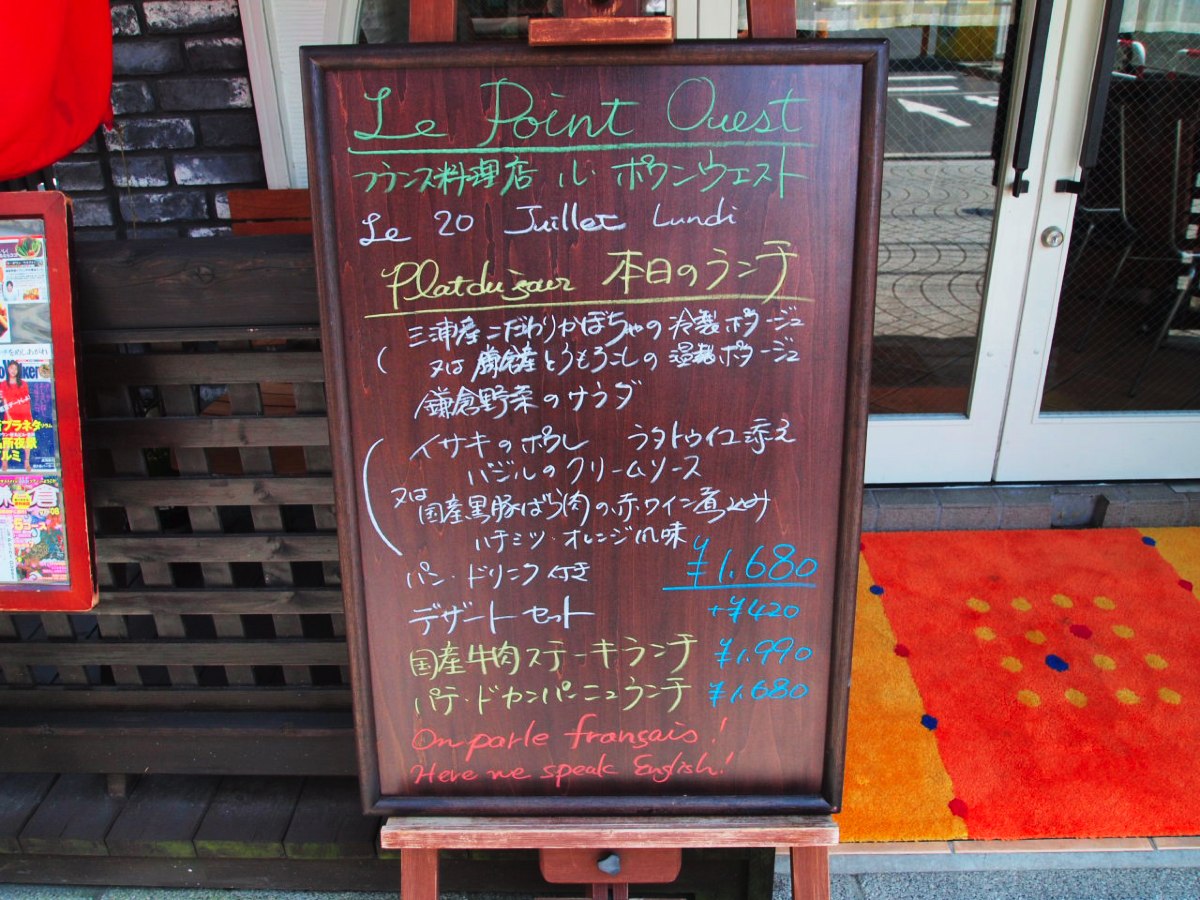 Le Point Ouest
フランス料理店 ル・ポワンウエスト
Le 20 Juillet Lundi
Plat du jour 本日のランチ
三浦産こだわりかぼちゃの冷製ポタージュ
又は 鎌倉産とうもろこしの温製ポタージュ
鎌倉野菜のサラダ
イサキのポワレ ラタトゥイユ添え
バジルのクリームソース
又は
国産黒豚ばら肉の赤ワイン煮込み
ハチミツ・オレンジ風味
パン・ドリンク付き ¥1.680
デザートセット +¥420
国産牛肉ステーキランチ ¥1.990
パテ・ドカンパーニュランチ ¥1.680
On parle français!
Here we speak English!
Walker
プラネタリウム